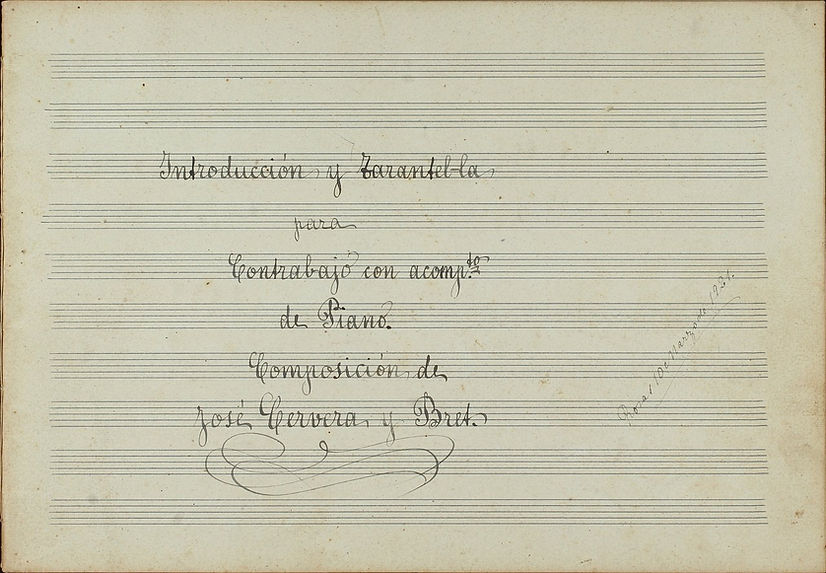 Introducción y Tarantel-la
para
Contrabajo con acomp.to
de Piano.
Composición de
José Cervera y Bret.
Rosas 10 de Marzo de 1921.